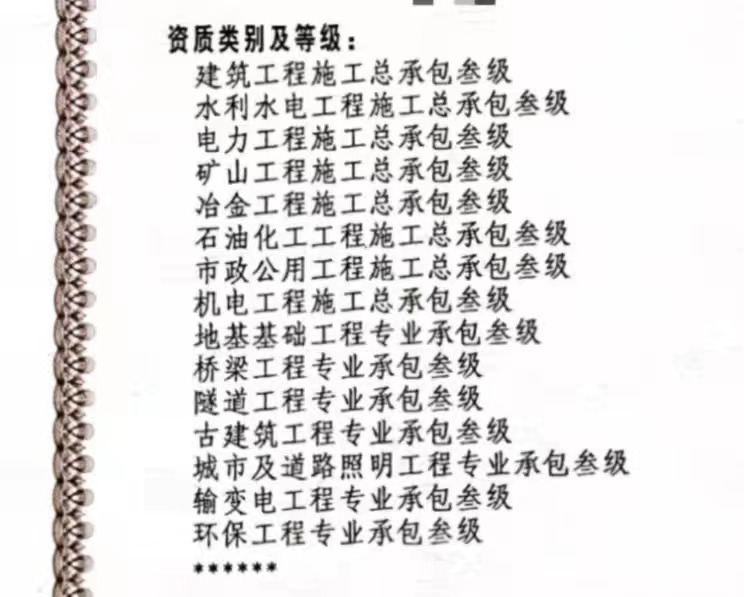 资质类别及等级：
建筑工程施工总承包叁级
水利水电工程施工总承包叁级
电力工程施工总承包叁级
矿山工程施工总承包叁级
冶金工程施工总承包叁级
石油化工工程施工总承包叁级
市政公用工程施工总承包叁级
机电工程施工总承包叁级
地基基础工程专业承包叁级
桥梁工程专业承包叁级
隧道工程专业承包叁级
古建筑工程专业承包叁级
城市及道路照明工程专业承包叁级
输变电工程专业承包叁级
环保工程专业承包叁级
******